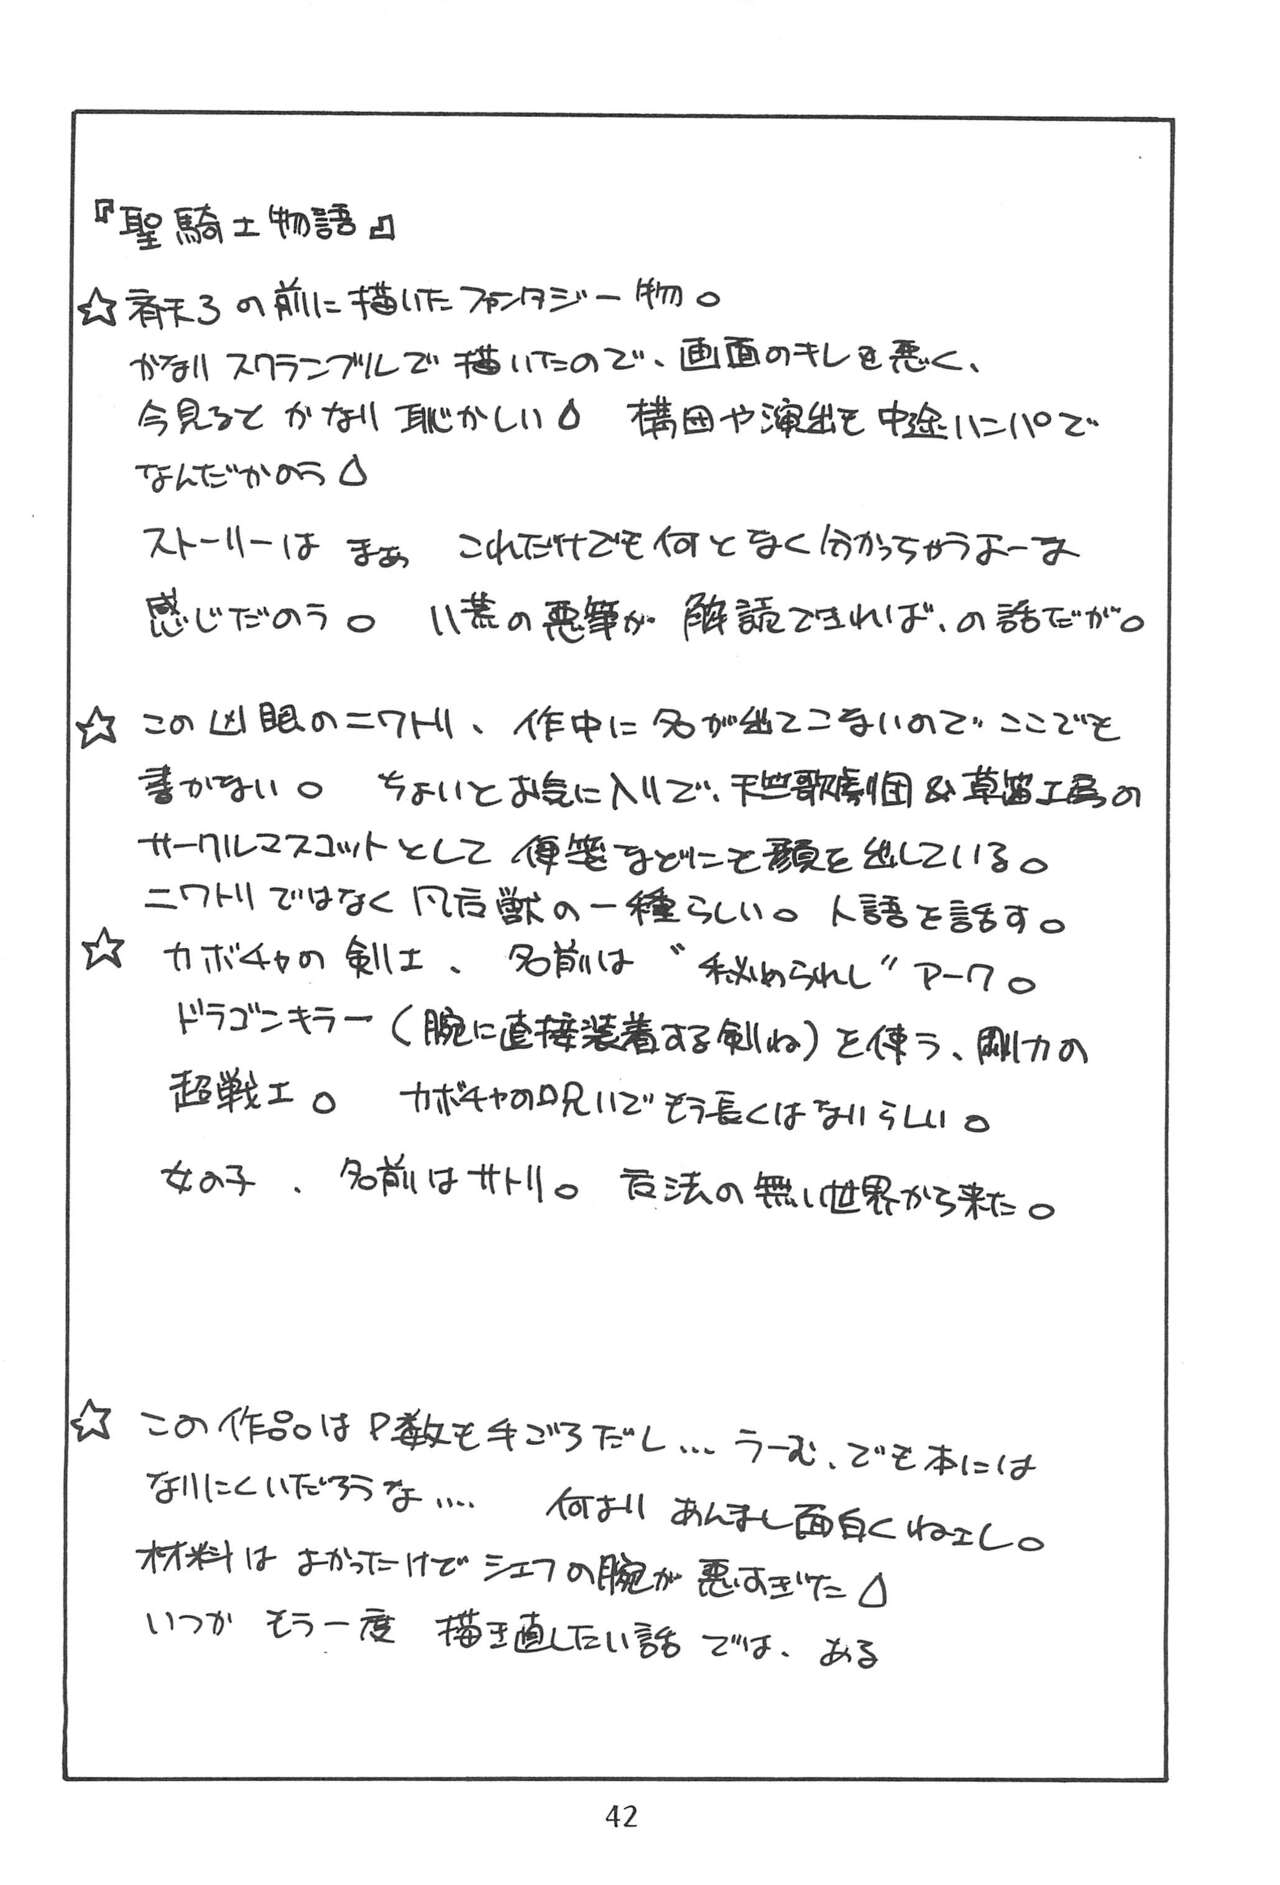 『聖騎士物語』
☆斉天3の前に描いたファンタジー物。
かなりスクランブルで描いたので、画面のキレも悪く、
今見るとかなり恥かしい 構図や演出も中途ハンパで
なんだかのう
ストーリーはまぁ これだけでも何となく分かっちゃうよーな
感じだのう。 八荒の悪筆が解読できれば、の話だが。
☆この凶眼のニワトリ、作中に名が出てこないのでここでも
書かない。 ちょいとお気に入りで、天竺歌劇団&草笛工房の
サークルマスコットとして便箋などにも顔を出している。
ニワトリではなく凡后獣の一種らしい。人語を話す。
☆カボチャの剣士、名前は“秘められし”アーク。
ドラゴンキラー(腕に直接装着する剣ね)を使う、剛力の
超戦士。 カボチャの呪いでもう長くはないらしい。
女の子、名前はサトリ。 法の無い世界から来た。
☆この作品はP数も手ごろだし… うーむ、でも本には
なりにくいだろうな…. 何よりあんまし面白くねェし。
材料はよかったけどシェフの腕が悪すぎた
いつかもう一度 描き直したい話では、ある
42